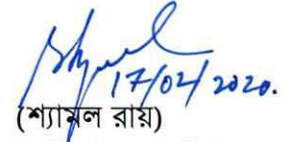 17/02/2020.
(শ্যামল রায়)